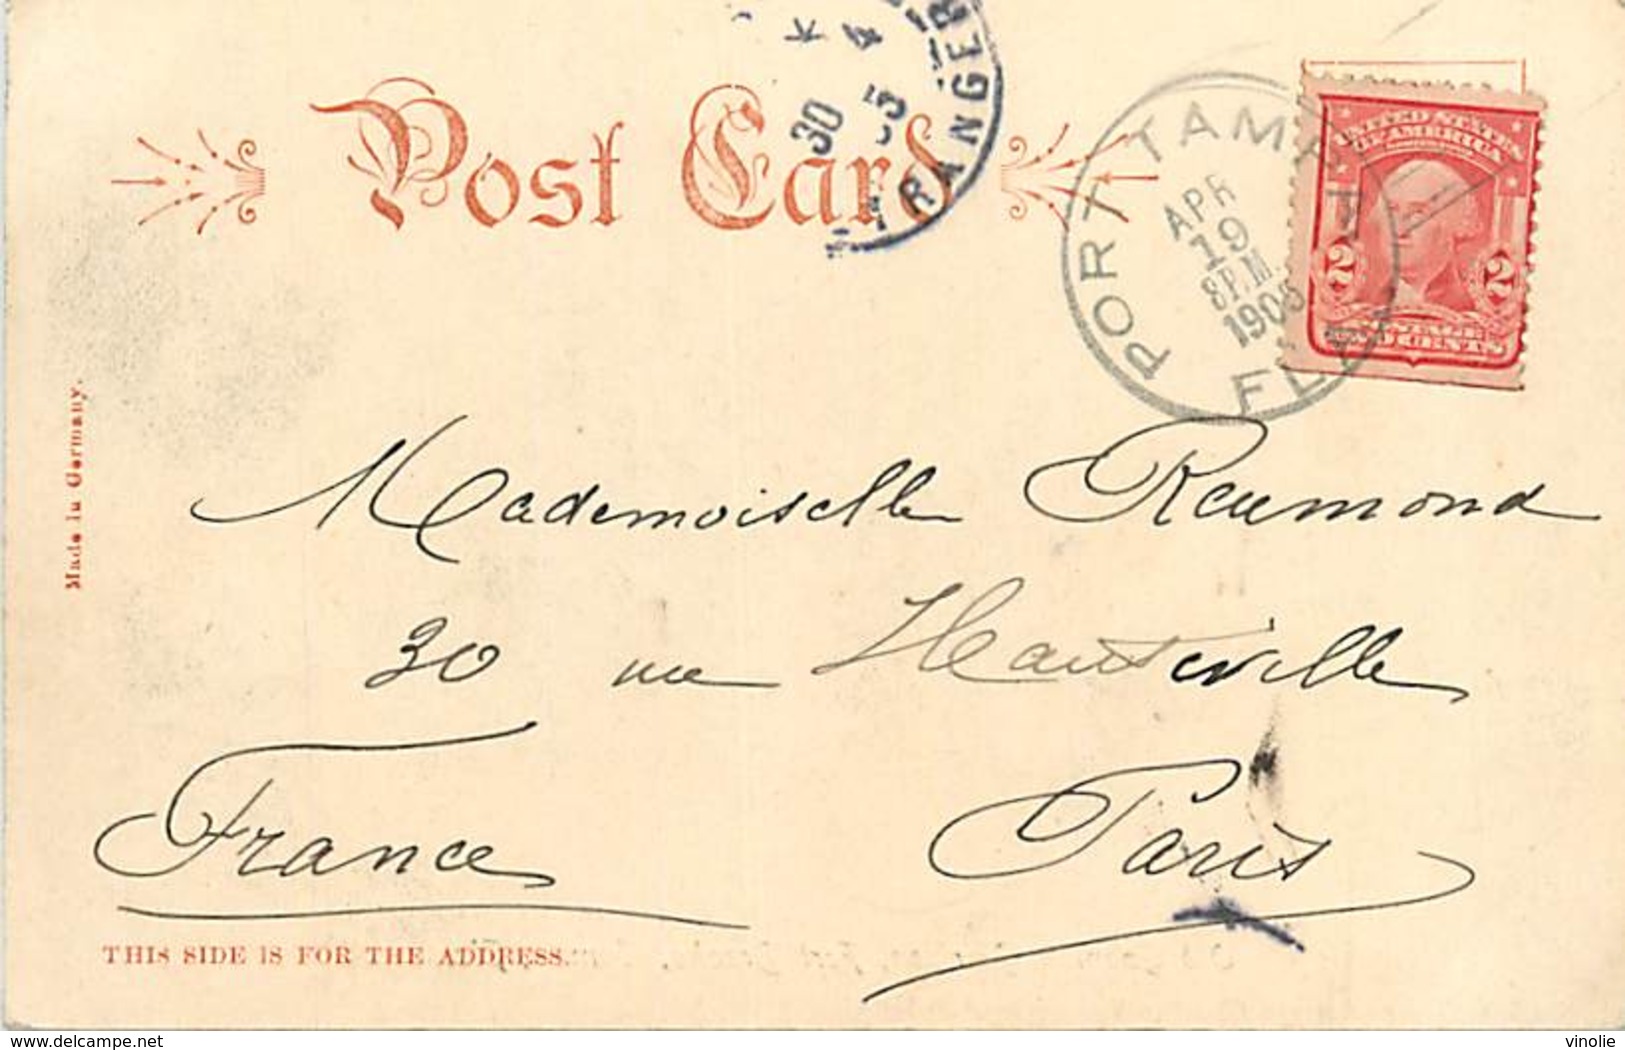 Post Card
30 4 05
ETRANGER
PORT TAMPA
APR
19
8 P.M.
190
FLA.
UNITED STATES
OF AMERICA
2 2
TWO CENTS
Made in Germany.
Mademoiselle Raymond
30 rue Hauteville
France Paris
THIS SIDE IS FOR THE ADDRESS.
delcampe.net
vinolie